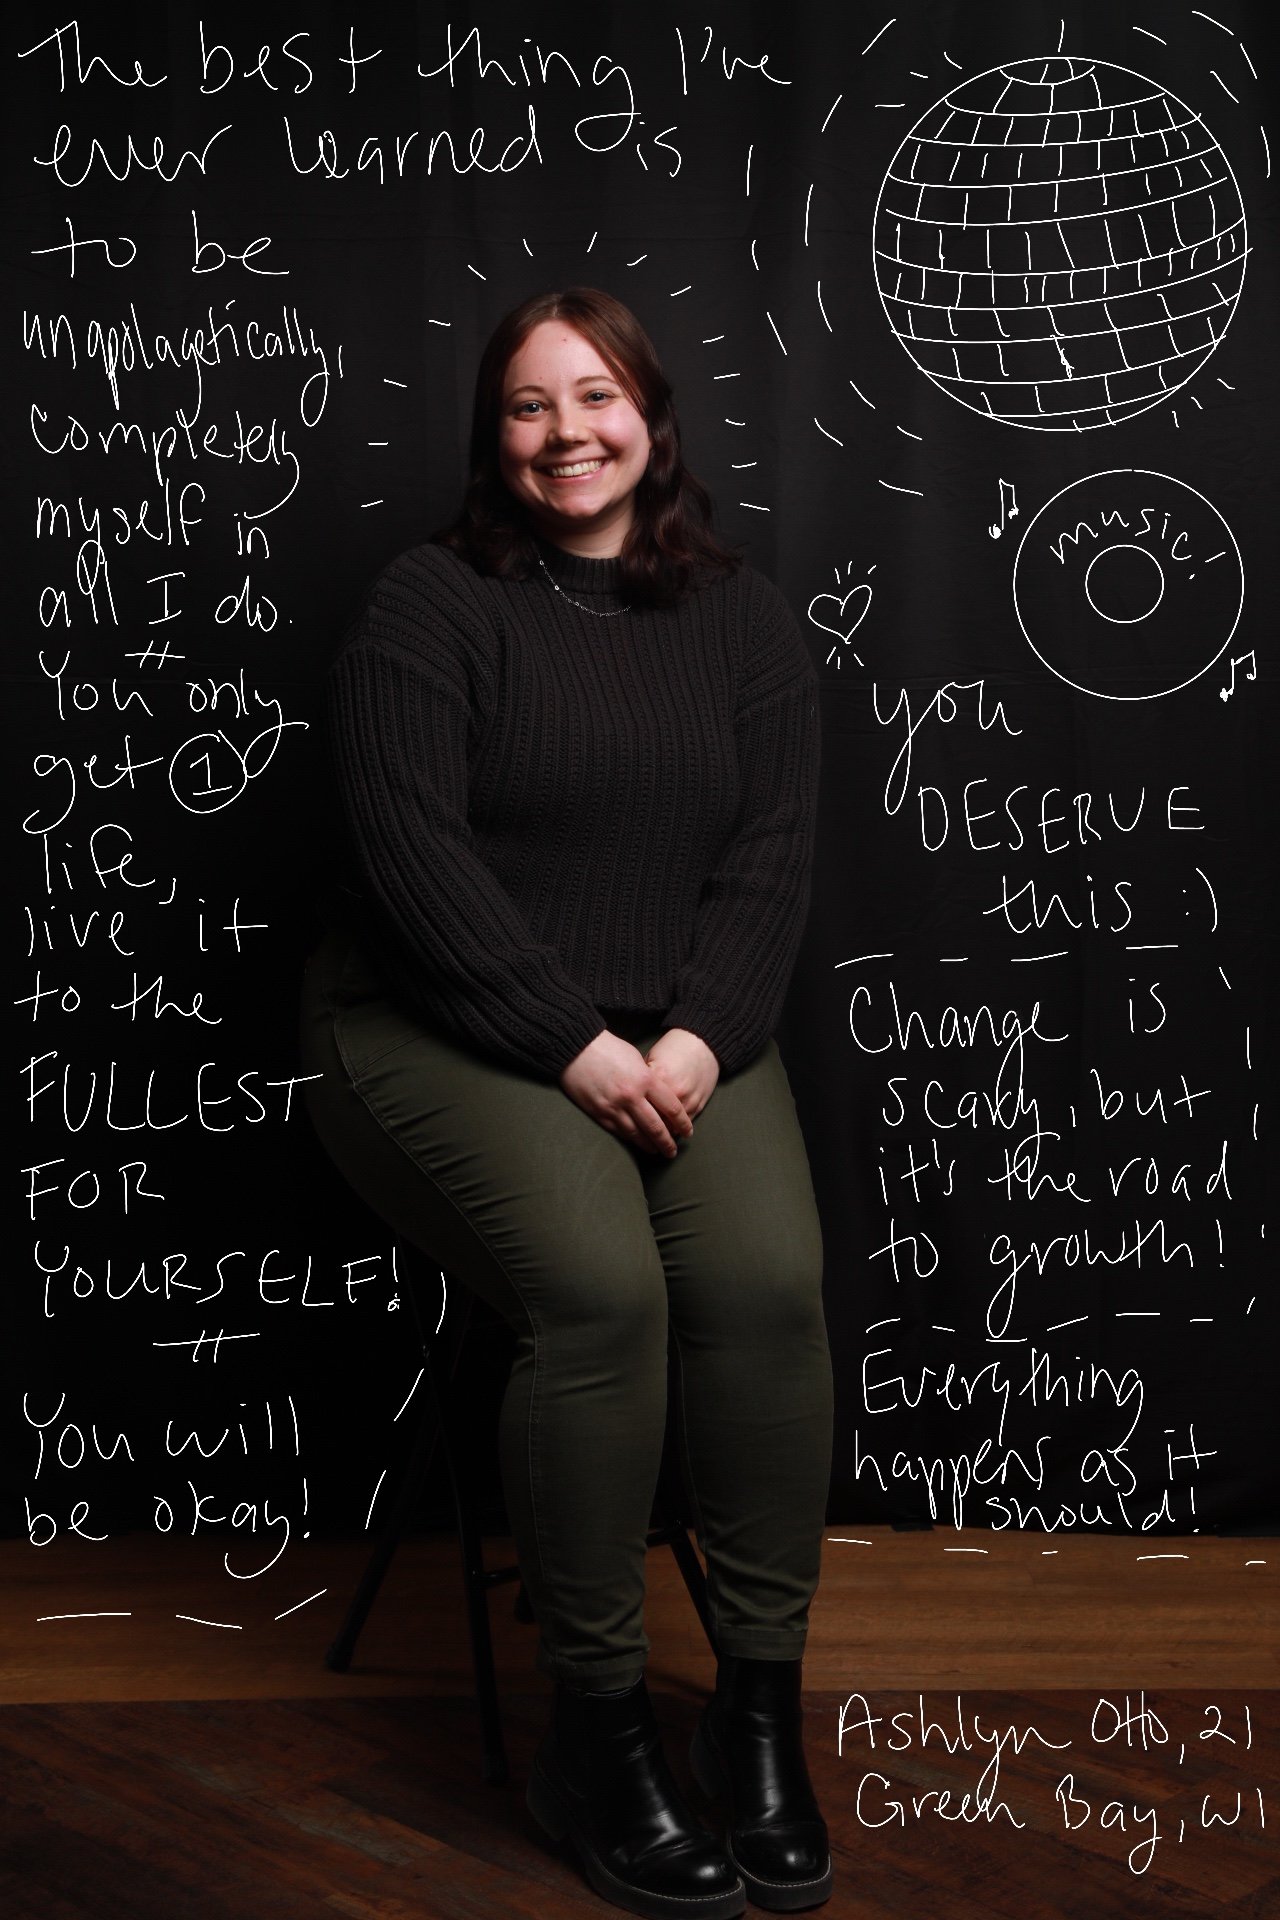 The best thing I've
ever learned is
to be
unapolagetically,
completely
myself in
all I do.
You only
get 1
life,
live it
to the
FULLEST
FOR
YOURSELF!
You will
be okay!
music!
you
DESERVE
this :)
Change is
scary, but
it's the road
to growth!
Everything
happens as it
should!
Ashlyn Otto, 21
Green Bay, WI